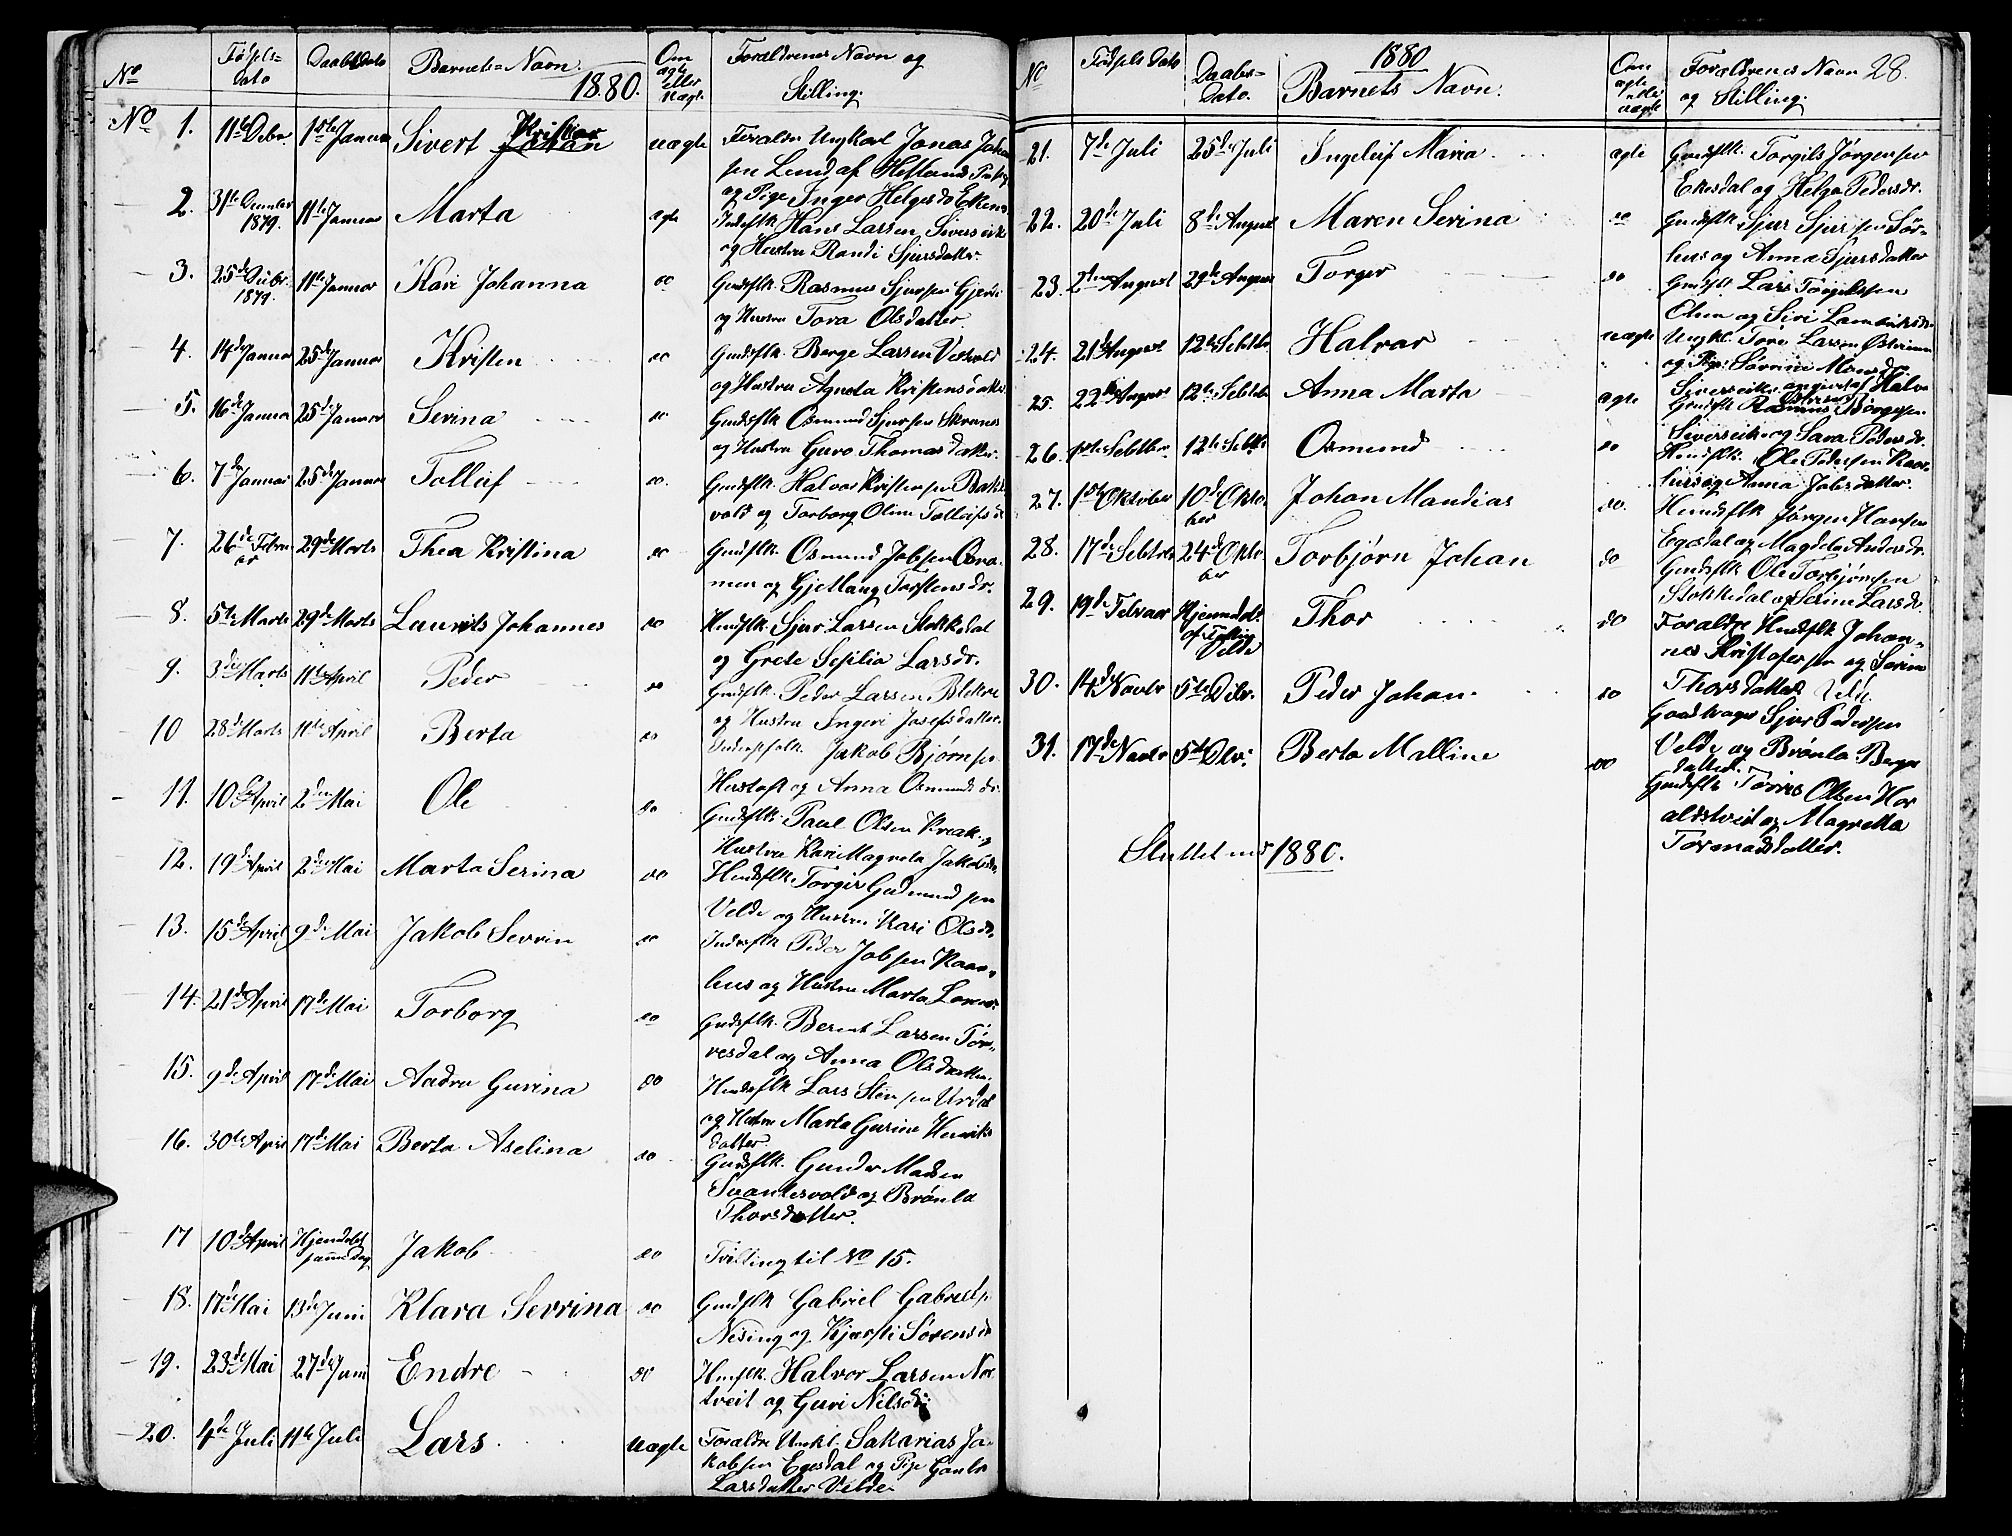 No
Fødsels=
dato
Daabsdato
Barnets=Navn.
1880.
Om
ægte
eller
uægte
Forældrenes Navn og
Stilling.
No 1. 11te Debr 1ste Januar Sivert Johan Kristian uægte Foraldre Ungkarl Jonas Johan
sen Lund af Hetland
og Pige Inger Helgesdr
2. 31te December 1879. 11te Januar Marta ægte Hans Larsen
og Hustru Randi Sjursdatter
3. 25de Debr. 1879. 11te Januar Kari Johanna do Gmdsflk. Rasmus Sjursen Gjerde
og Hustru Tora Olsdatter.
4. 14de Januar 25de Januar Kristen do Gmdsflk. Børge Larsen
og Hustru Agneta Kristensdatter
5. 16de Januar 25de Januar Serina do Gmdsflk. Osmund Sjursen
og Hustru Guro Thomasdatter.
6. 7de Januar 25de Januar Tolleif do. Gmdsflk. Halvor Kristensen Bak
vold og Torborg Oline Tolleifsd
7. 26de Februar 29de Marts Thea Kristina do Gmdsflk. Osmund Jobsen
men og Torstensdr.
8. 5te Marts 29de Marts Laurits Johannes do Hmdsflk. Sjur Larsen Stokkedal
og Grete Sesilia Larsdr.
9. 3de Marts 11te April Peder do Gmdsflk. Peder Larsen
og Hustru Ingeri Josefsdatter.
10 28de Marts 11te April Berta do Jakob Bjørnsen
og Anna Osmundsdr.
11. 10de April 2den Mai Ole do Gmdsflk. Paul Olsen
Hustru Kari Magreta Jakobsdr
12. 19de April 2den Mai Marta Serina do Hmdsflk. Torger Gudmundsen
Velde og Hustru Kari Olsdr.
13. 15de April 9de Mai Jakob Severin do Peder Jobsen Raa
hus og Hustru Marta
14. 21de April 17de Mai Torborg do Gmdsflk. Berent Larsen Tør=
resdal og Anna Olsdatter.
15. 9de April 17de Mai Aadra Gurina do Hmdsflk. Lars Stensen Urdal
og Hustru Marta Gurine Henriks
datter.
16. 30te April 17de Mai Berta Aselina do Gmdsflk. Gunder Madsen
Svantesvold og Brønla
Thorsdatter.
17 10de April Hjemdøbt samme dag Jakob do Tvilling til No 15.
18. 17de Mai 13de Juni Klara Sevrina do Gmdsflk Gabriel Gabrielse
Nesing og Kjersti Sørensd
19. 23de Mai 27de Juni Endre do Halvor Larsen Nor
tveit og Guri Nilsdr.
20. 4de Juli 11te Juli Lars uægte Foraldre Unkl. Sakarias Ja=
kobsen Egesdal og Pige
Larsdatter Velde
No
Fødsels Dato
Daabs=
Dato.
1880
Barnets Navn.
Om
ægte
eller
uægte
Forældrenes Navn 28.
og Stilling.
21. 7de Juli 25de Juli Ingeleif Maria ægte Gmdsflk. Torgils Jørgensen
Ekesdal og Helga Pedersdr.
22. 20de Juli 8de August Maren Serina do Gmdsflk Sjur Sjursen Sør=
hus og Anna Sjursdatter
23. 2den August 29de August Torger do Gmdsfl Lars Torgelssen
og Siri Lambriksdr
24. 21de August 12te Sebtbr Halvar uægte Ungkl. Tore Larsen
og Pige Sørine Monsdr.
angivet af Halvor
25. 22de August 12te Sebtbr Anna Marta ægte Gmdsflk Rasmus Børgesen
og Sara Pedersdr.
26. 1ste Sebtbr 12te Sebtbr Osmund do Hmdsflk. Ole Pedersen Raae
hus og Anna Jobsdatter.
27. 1ste Oktober 10de Oktober Johan Mandias do. Hmdsflk Jørgen Hansen
Egesdal og Magdela Andersdr.
28. 17de Sebtbr 24de Oktober Torbjørn Johan do Gmdsflk Ole Torbjørnsen
Stokkedal og Serine Larsdr.
29. 19de Februar Hjemmdøbt af Velde Thor do Foraldre Hmdsflk Johan=
nes Kristofersen og Serine
Thorsdatter Velde
30. 14de Novbr 5te Debr. Peder Johan. do Gaardbruger Sjur Pedersen
Velde og Brønla Børges
datter.
31. 17de Novbr 5te Debr. Berta Malline do Gmdsflk Tørres Olsen Har
aldstveit og Magretta
Tormodsdatter.
Sluttet med 1880.